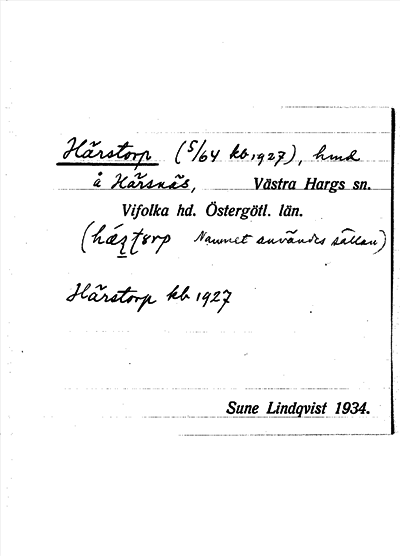 Härstorp (5/64 kb 1927), hmd
å Härsnäs, Västra Hargs sn.
Vifolka hd. Östergötl. län.
Namnet användes sällan)
Härstorp kb 1927
Sune Lindqvist 1934.